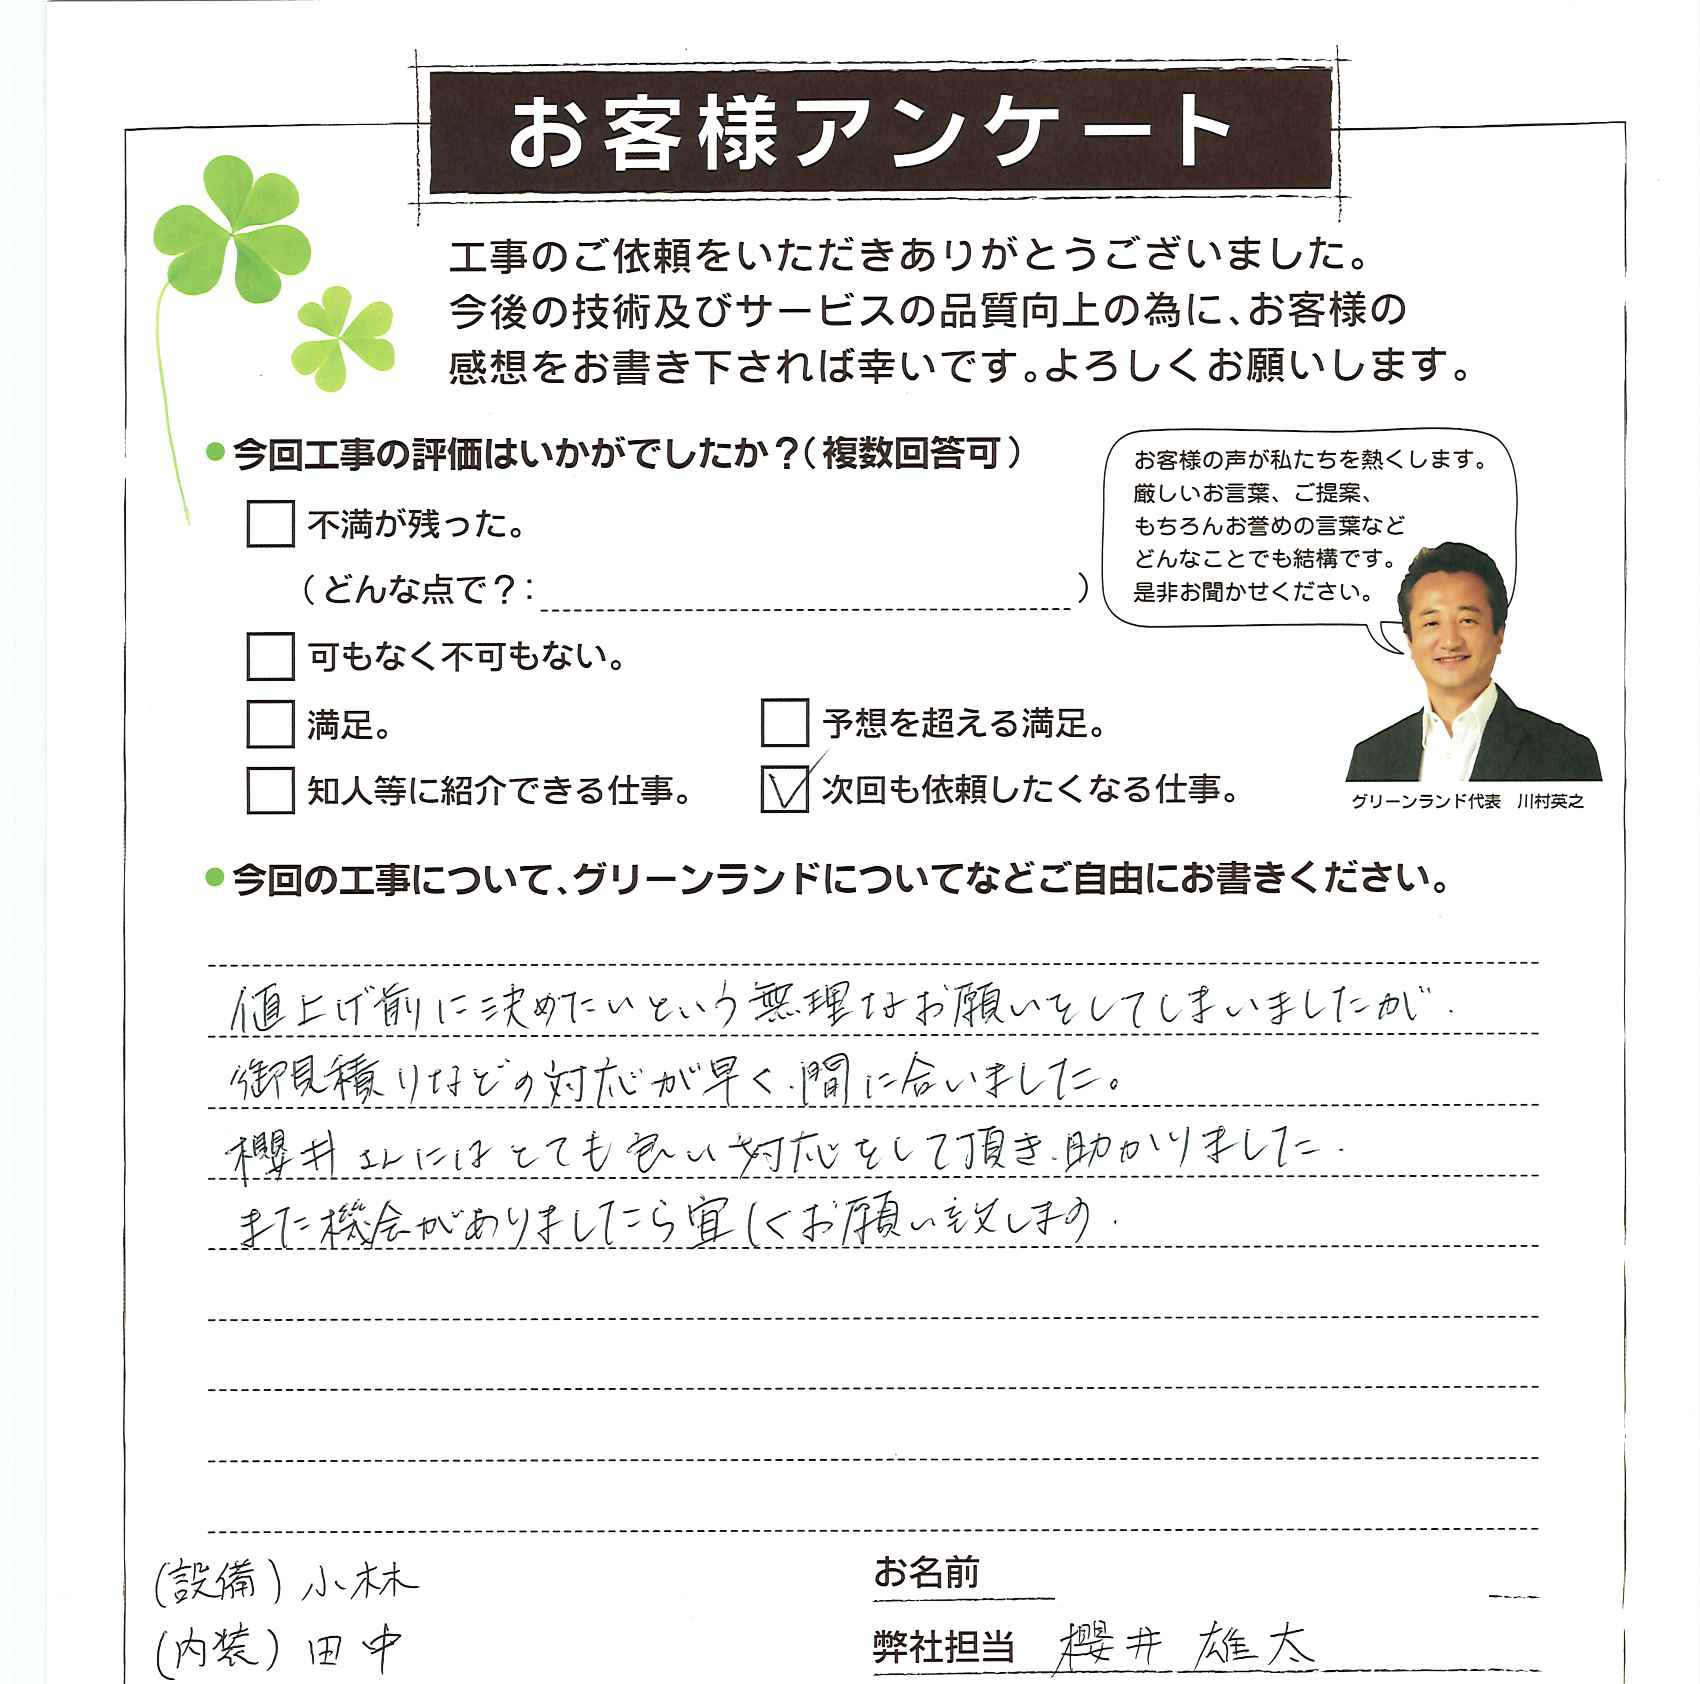 お客様アンケート
工事のご依頼をいただきありがとうございました。
今後の技術及びサービスの品質向上の為に、お客様の
感想をお書き下されば幸いです。よろしくお願いします。
今回工事の評価はいかがでしたか？(複数回答可)
お客様の声が私たちを熱くします。
厳しいお言葉、ご提案、
もちろんお誉めの言葉など
どんなことでも結構です。
是非お聞かせください。
不満が残った。
(どんな点で？: )
可もなく不可もない。
満足。
予想を超える満足。
知人等に紹介できる仕事。
次回も依頼したくなる仕事。
グリーンランド代表 川村英之
今回の工事について、グリーンランドについてなどご自由にお書きください。
値上げ前に決めたいという無理なお願いをしてしまいましたが.
御見積りなどの対応が早く.間に合いました。
櫻井さんにはとても良い対応をして頂き.助かりました.
また機会がありましたら宜しくお願い致します.
(設備) 小林
お名前
(内装) 田中
弊社担当 櫻井 雄太